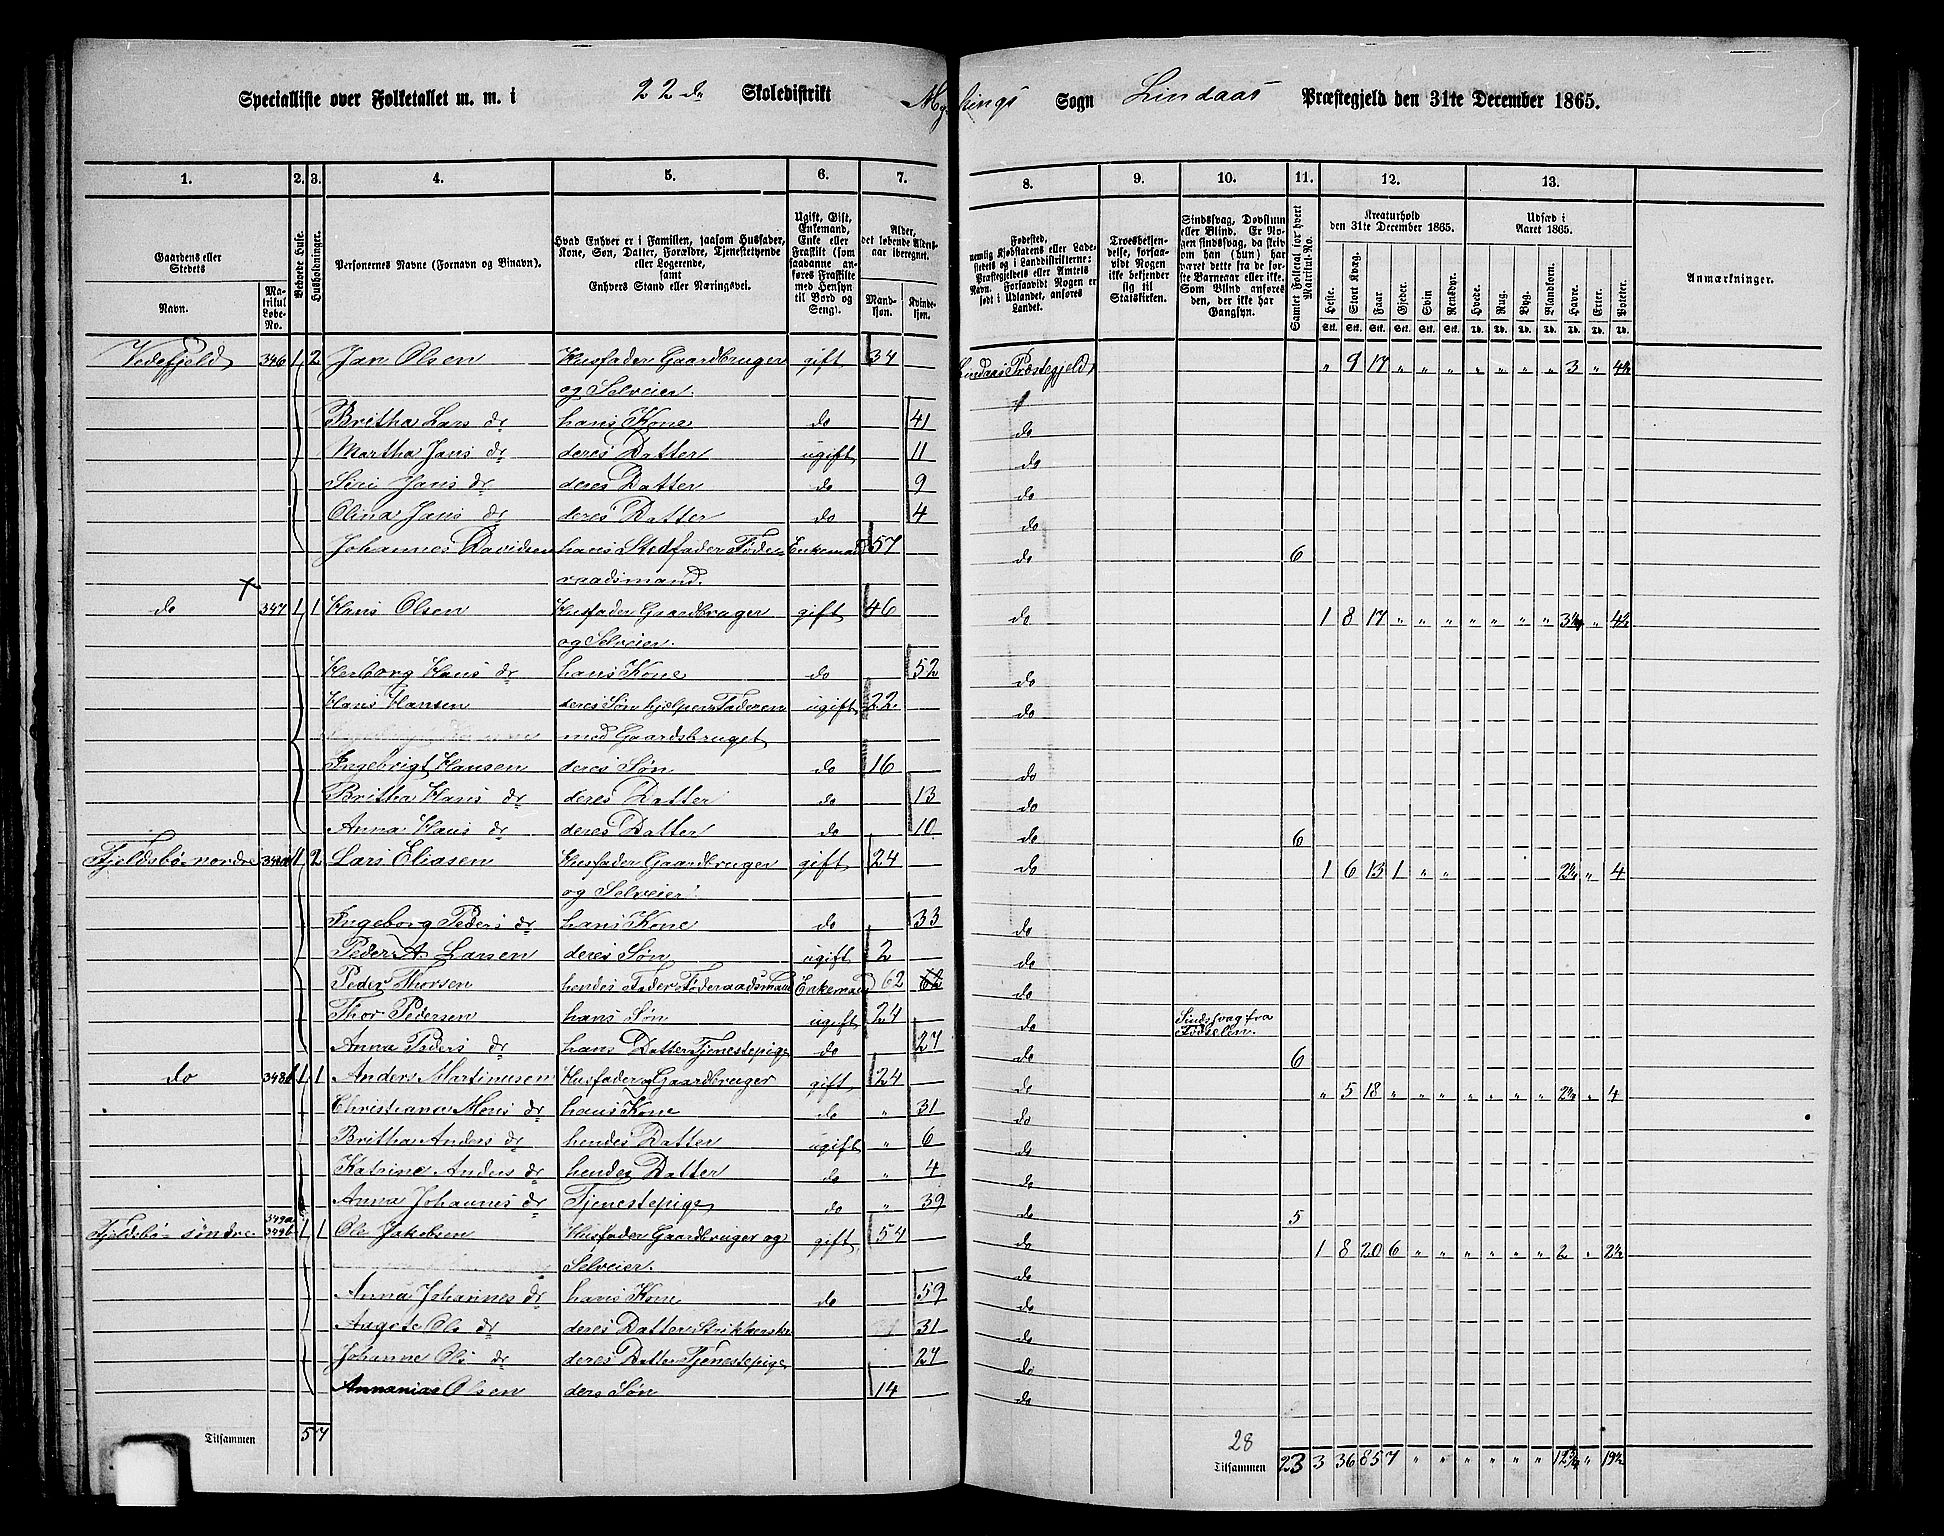 Specialliste over Folketallet m. m. i 22de Skoledistrikt Myckings Sogn Lindaas Præstegjeld den 31te December 1865.
1. 2. 3. 4. 5. 6. 7. 8. 9. 10. 11. 12. 13.
Gaardens eller Stedets
Navn.
Matrikul Løbe-No.
Beboede Huse.
Husholdninger.
Personernes Navne (Fornavn og Binavn).
Hvad Enhver er i Familien, saasom Husfader, Kone, Søn, Datter, Forældre, Tjenestetyende eller Logerende, samt Enhvers Stand eller Næringsvei.
Ugift, Gift, Enkemand, Enke eller Fraskilt (som saadanne anføres Fraskilte med Hensyn til Bord og Seng).
Alder, det løbende Aldersaar iberegnet.
Mandkjøn. Kvindekjøn.
Fødested, nemlig Kjøbstadens eller Ladestedets og i Landdistrikterne: Præstegjeldets eller Amtets Navn. Forsaavidt Nogen er født i Udlandet, anføres Landet.
Troesbekjendelse, forsaavidt Nogen ikke bekjender sig til Statskirken.
Sindssvag, Døvstum eller Blind. Er Nogen sindssvag, da skrives om han (hun) har været dette fra de første Barneaar eller ikke. Som Blind anføres den, der ikke har Gangsyn.
Samlet Folketal for hvert Matrikul-No.
Kreaturhold den 31te December 1865.
Heste. Stort Kvæg. Faar. Gjeder. Svin. Rensdyr.
Udsæd i Aaret 1865.
Hvede. Rug. Byg. Blandkorn. Havre. Erter. Poteter.
Anmærkninger.
Vedefjeld 346 1 2 Jan Olsen Husfader Gaardbruger gift 34 Lindaas Præstegjeld " 9 17 " " " " " " " 3 " 4½
og Selveier.
Britha Lars dr hans Kone do 41 do
Martha Jans dr deres Datter ugift 11 do
Siri Jans dr deres Datter do 9 do
Olina Jans dr deres Datter do 4 do
Johannes Davidsen hans Stedfader Føde- Enkemand 57 do 6
raadsmand.
do 347 1 1 Hans Olsen Husfader Gaardbruger gift 46 do 1 8 17 " " " " " " " 3¼ " 4½
og Selveier.
Herborg Hans dr hans Kone do 52 do
Hans Hansen deres Søn hjelper Faderen ugift 22 do
med Gaardsbruget
Ingebrigt Hansen deres Søn do 16 do
Britha Hans dr deres Datter do 13 do
Anna Hans dr deres Datter do 10 do 6
Fjeldsbø nordre 348a 1 2 Lars Eliasen Husfader Gaardbruger gift 24 do 1 6 13 1 " " 2¼ " 4
og Selveier.
Ingeborg Peders dr hans Kone do 33 do
Peder A Larsen deres Søn ugift 2 do
Peder Thorsen hendes Fader Føderaadsmand Enkemand 62 62 do
Thor Pedersen hans Søn ugift 24 do Sindssvag fra Fødselen.
Anna Peders dr hans Datter Tjenestepige do 27 do 6
do 348b 1 1 Anders Martinusen Husfader Gaardbruger gift 24 do " 5 18 " " " " " " " 2¼ " 4
Christiana Mons dr hans Kone do " 31 do
Britha Anders dr hendes Datter ugift " 6 do
Katrine Anders dr hendes Datter do " 4 do
Anna Johannes dr Tjenestepige do " 39 do 5
Fjeldsbø søndre 349a 349b 1 1 Ole Jakobsen Husfader Gaardbruger og gift 54 do 1 8 20 6 " " " " " " 2 " 2½
Selveier. do
Anna Johannes dr hans Kone do 59 do
Aagote Ols dr deres Datter Strikkerske 31 do
Johanne Ols dr deres Datter Tjenestepige 27 do
Annanias Olsen deres Søn 14 do
Tilsammen 5 7 28
Tilsammen 23 3 36 85 7 " " " " " " 12¾ " 19½